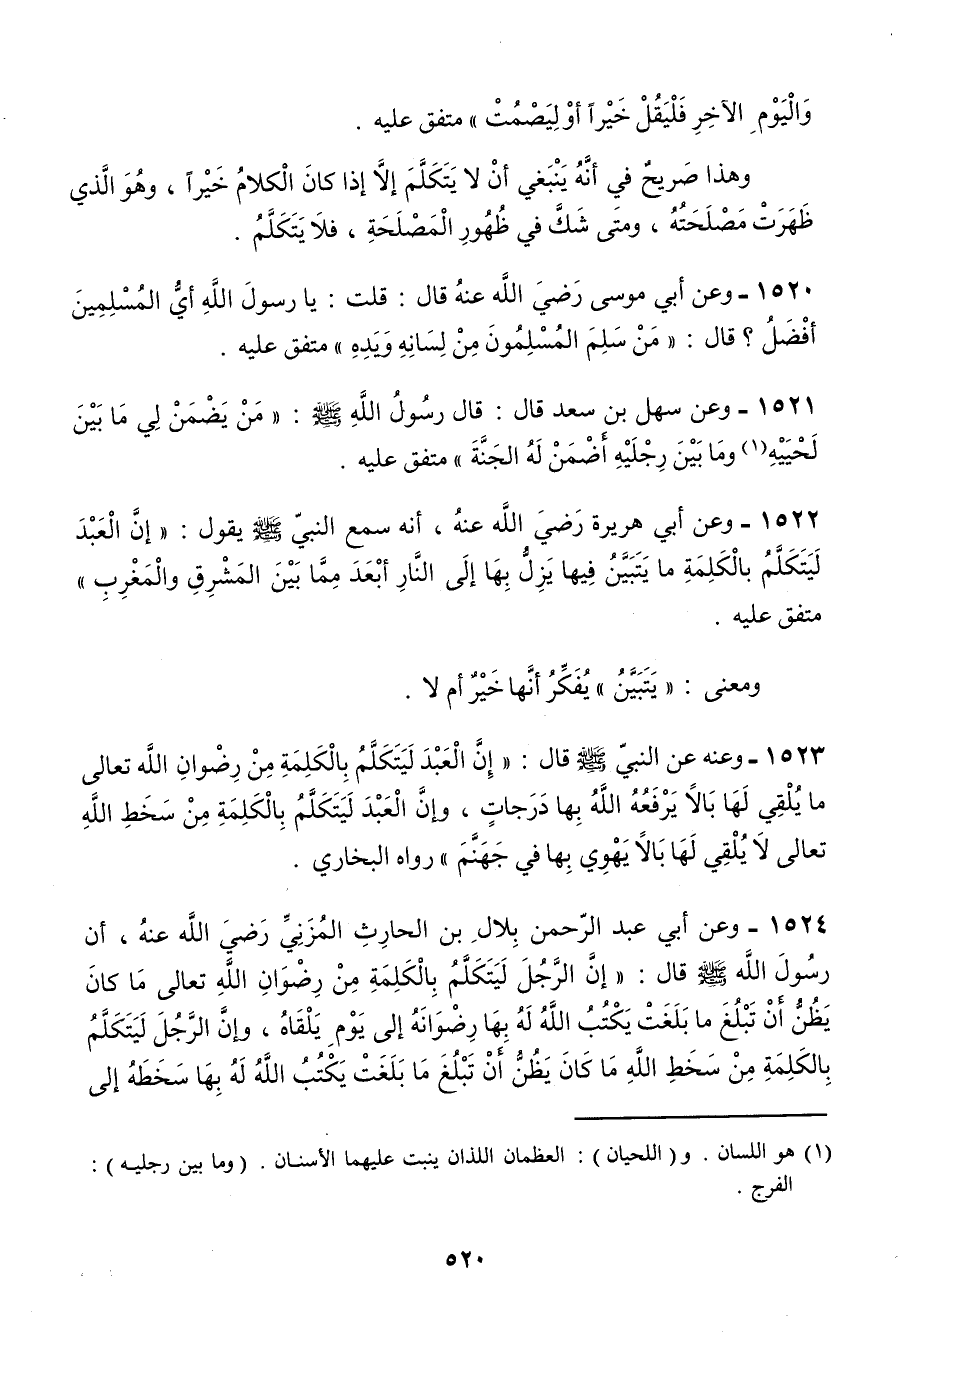 وَالْيَوْمِ الآخِرِ فَلْيَقُلْ خَيْراً أوْ لِيَصْمُتْ » متفق عليه .
وهذا صَريحٌ في أنَّهُ يَنْبَغي أنْ لا يَتَكَلَّمَ إلَّا إذا كانَ الْكلامُ خَيْراً ، وهُوَ الَّذي
ظَهَرَتْ مَصْلَحَتُهُ ، ومتَى شَكَّ في ظُهُورِ الْمَصْلَحَةِ ، فلَا يَتَكَلَّمُ .
١٥٢٠ ـ وعن أبي موسى رَضيَ اللَّه عنهُ قال : قلت : يا رسولَ اللَّهِ أيُّ المُسْلِمِينَ
أفْضَلُ ؟ قال : « مَنْ سَلِمَ المُسْلِمُونَ مِنْ لِسَانِهِ وَيَدِهِ » متفق عليه .
١٥٢١ ـ وعن سهل بن سعد قال : قال رسُولُ اللَّهِ ﷺ : « مَنْ يَضْمَنْ لِي مَا بَيْنَ
لَحْيَيْهِ(١) ومَا بَيْنَ رِجْلَيْهِ أَضْمَنْ لَهُ الجَنَّةَ » متفق عليه .
١٥٢٢ ـ وعن أبي هريرة رَضيَ اللَّه عنهُ ، أنه سمع النبيّ ﷺ يقول : « إنَّ الْعَبْدَ
لَيَتَكَلَّمُ بالْكَلِمَةِ ما يَتَبَيَّنُ فِيها يَزِلُّ بِهَا إلَى النَّارِ أبْعَدَ مِمَّا بَيْنَ المَشْرِقِ والْمَغْرِبِ »
متفق عليه .
ومعنى : « يَتَبَيَّنُ » يُفَكِّرُ أنَّها خَيْرٌ أم لا .
١٥٢٣ ـ وعنه عن النبيّ ﷺ قال : « إِنَّ الْعَبْدَ لَيَتَكَلَّمُ بِالْكَلِمَةِ مِنْ رِضْوانِ اللَّه تعالى
ما يُلْقِي لَهَا بَالاً يَرْفَعُهُ اللَّهُ بِها دَرَجاتٍ ، وإنَّ الْعَبْدَ لَيَتَكَلَّمُ بِالْكَلِمَةِ مِنْ سَخَطِ اللَّهِ
تعالى لَا يُلْقِي لَهَا بَالًا يَهْوِي بِها في جَهَنَّمَ » رواه البخاري .
١٥٢٤ ـ وعن أبي عبد الرّحمن بِلالِ بن الحارِثِ المُزَنِيِّ رَضيَ اللَّه عنهُ ، أن
رسُولَ اللَّه ﷺ قال : « إنَّ الرَّجُلَ لَيَتَكَلَّمُ بِالْكَلِمَةِ مِنْ رِضْوَانِ اللَّهِ تعالى مَا كانَ
يَظُنُّ أَنْ تَبْلُغَ ما بَلَغَتْ يَكْتُبُ اللَّهُ لَهُ بِهَا رِضْوَانَهُ إلى يَوْمِ يَلْقَاهُ ، وإنَّ الرَّجُلَ لَيَتَكَلَّمُ
بِالكَلِمَةِ مِنْ سَخَطِ اللَّهِ مَا كَانَ يَظُنُّ أَنْ تَبْلُغَ مَا بَلَغَتْ يَكْتُبُ اللَّهُ لَهُ بِهَا سَخَطَهُ إلى
(١) هو اللسان . و ( اللحيان ) : العظمان اللذان ينبت عليهما الأسنان . ( وما بين رجليه ) :
الفرج .
٥٢٠